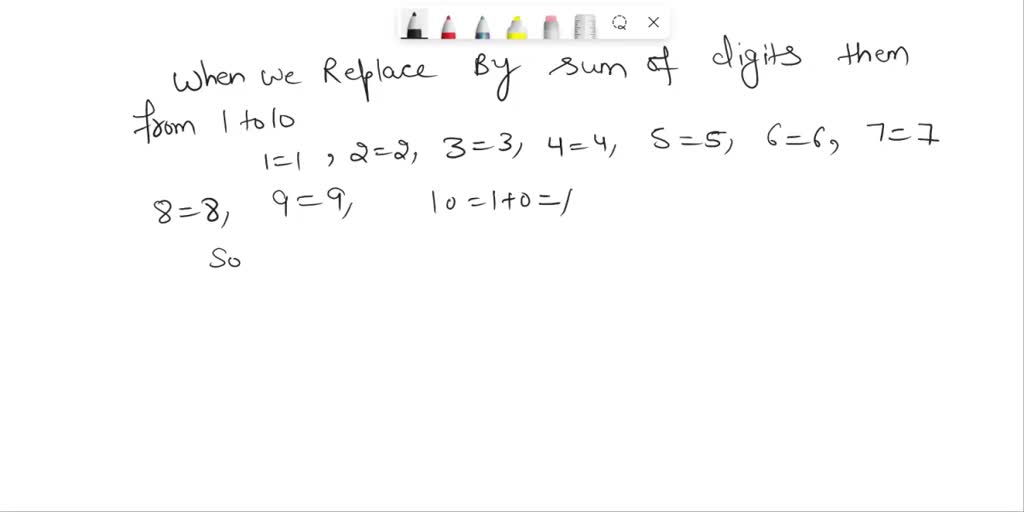 When we Replace By sum of digits them
from 1 to 10
1=1, 2=2, 3=3, 4=4, 5=5, 6=6, 7=7
8=8, 9=9, 10=1+0=1
So